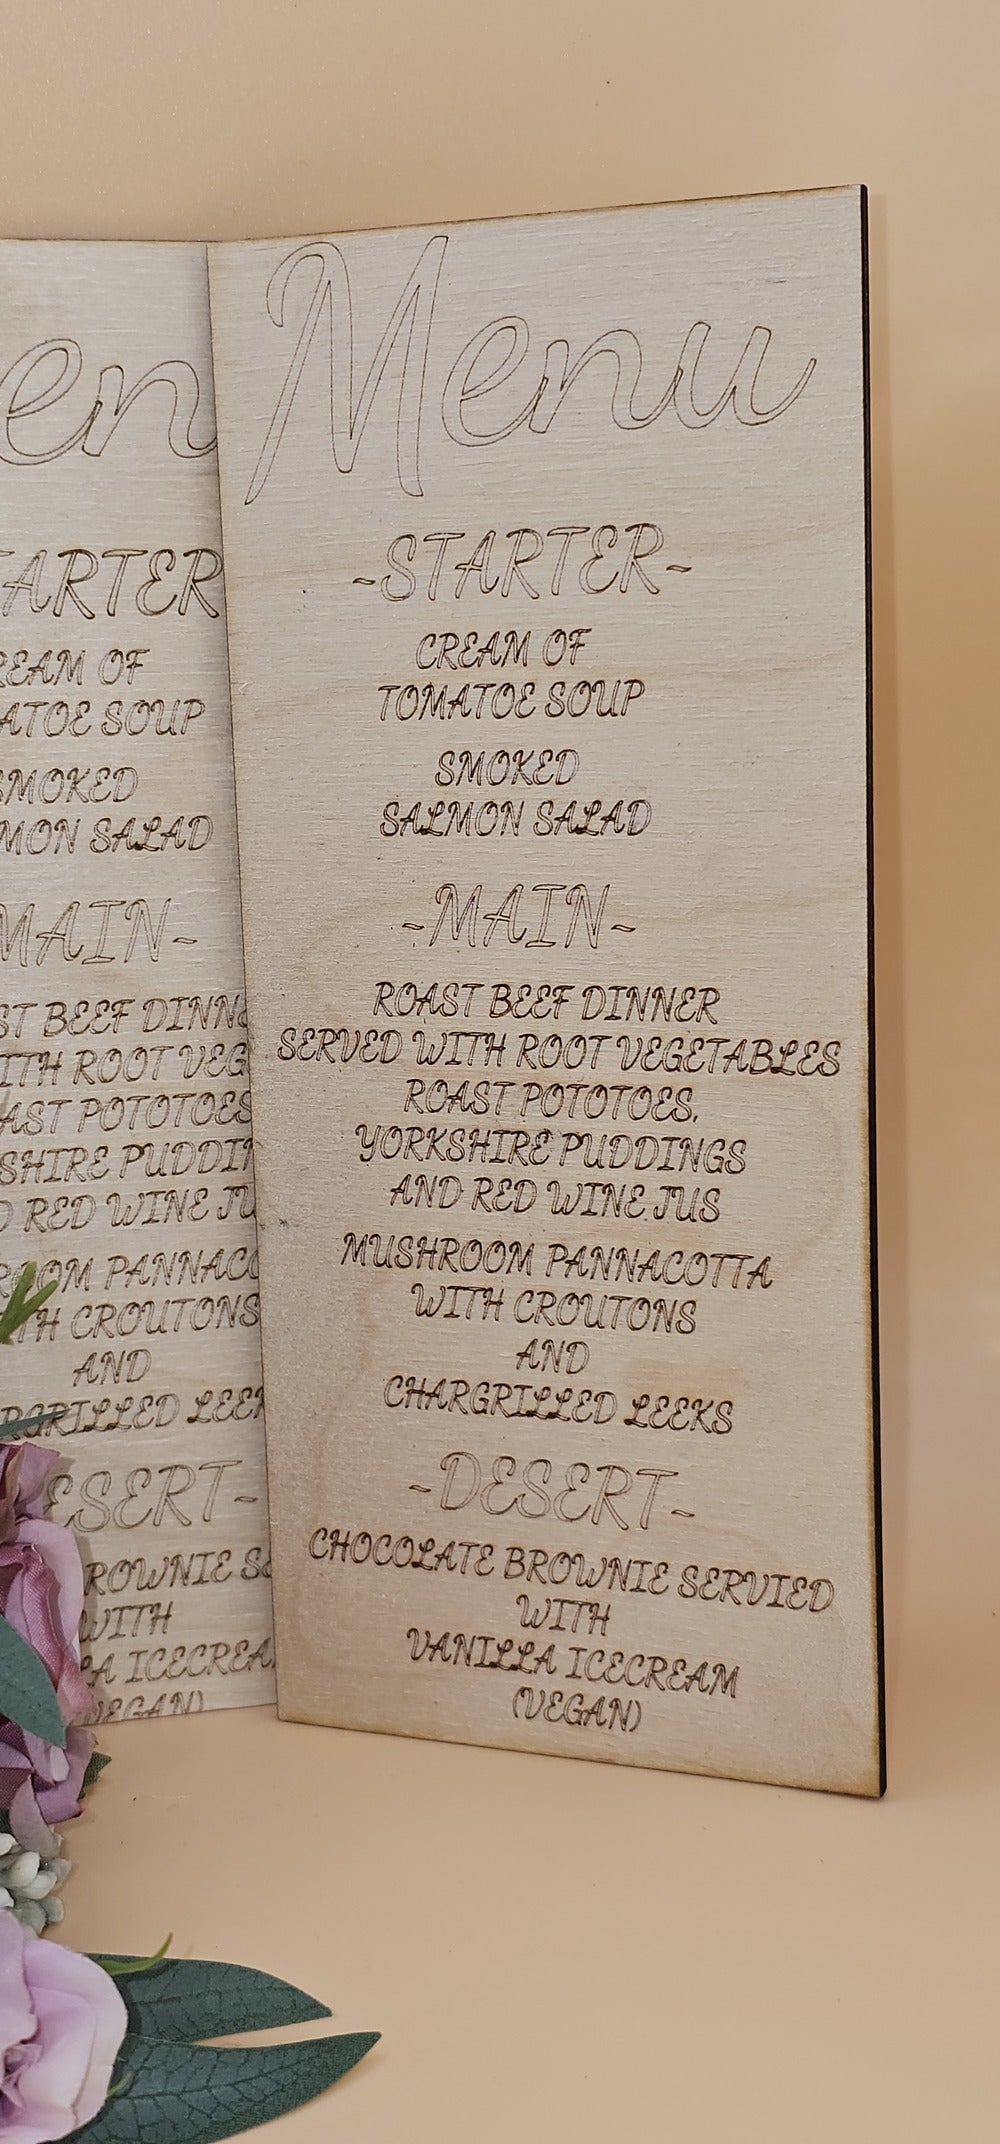 Menu
-STARTER-
CREAM OF
TOMATOE SOUP
SMOKED
SALMON SALAD
-MAIN-
ROAST BEEF DINNER
SERVED WITH ROOT VEGETABLES
ROAST POTOTOES,
YORKSHIRE PUDDINGS
AND RED WINE JUS
MUSHROOM PANNACOTTA
WITH CROUTONS
AND
CHARGRILLED LEEKS
-DESERT-
CHOCOLATE BROWNIE SERVIED
WITH
VANILLA ICECREAM
(VEGAN)
en
TARTER
REAM OF
ATOE SOUP
SMOKED
MON SALAD
MAIN-
ST BEEF DINNE
ITH ROOT VEG
AST POTOTOES
SHIRE PUDDIN
D RED WINE JU
ROOM PANNACO
TH CROUTONS
AND
RGRILLED LEEK
ESERT-
ROWNIE SE
WITH
LA ICECREA
(VEGAN)